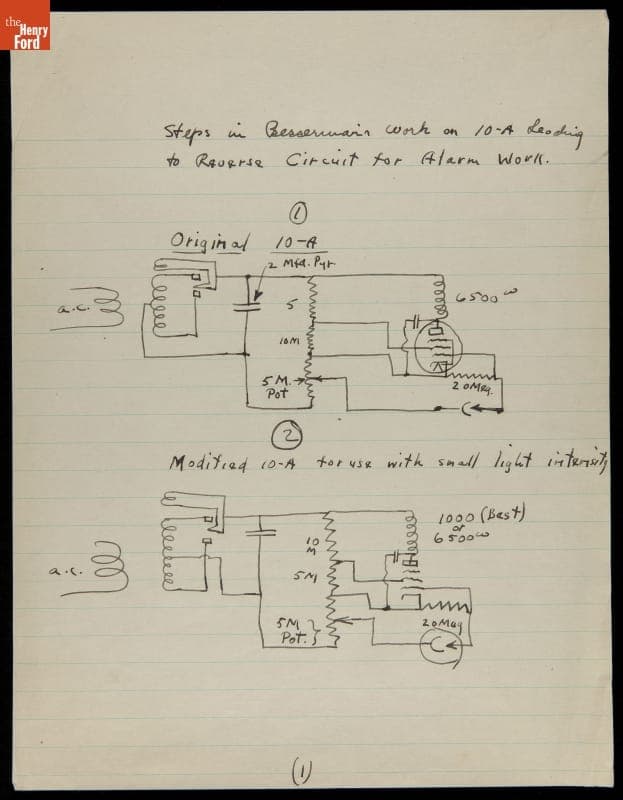 the
Henry
Ford
Steps in Besserman's work on 10-A Leading
to Reverse Circuit for Alarm Work.
1
Original 10-A
2 Mfd. Pyr.
a.c.
5
6500 ω
10M
5 M.
Pot
20Meg.
2
Modified 10-A for use with small light intensity
1000 (Best)
or
6500 ω
10
M
a.c.
5M
5M
Pot.
20Meg
(1)